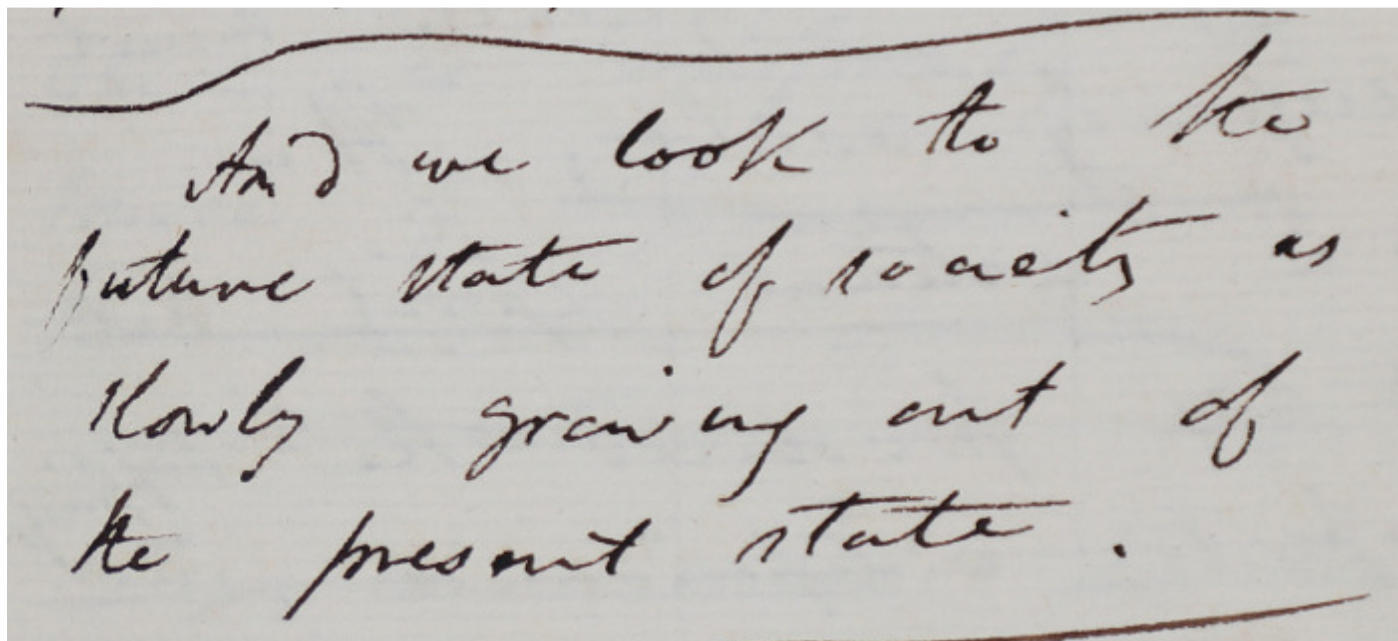 And we look to the
future state of society as
slowly growing out of
the present state.